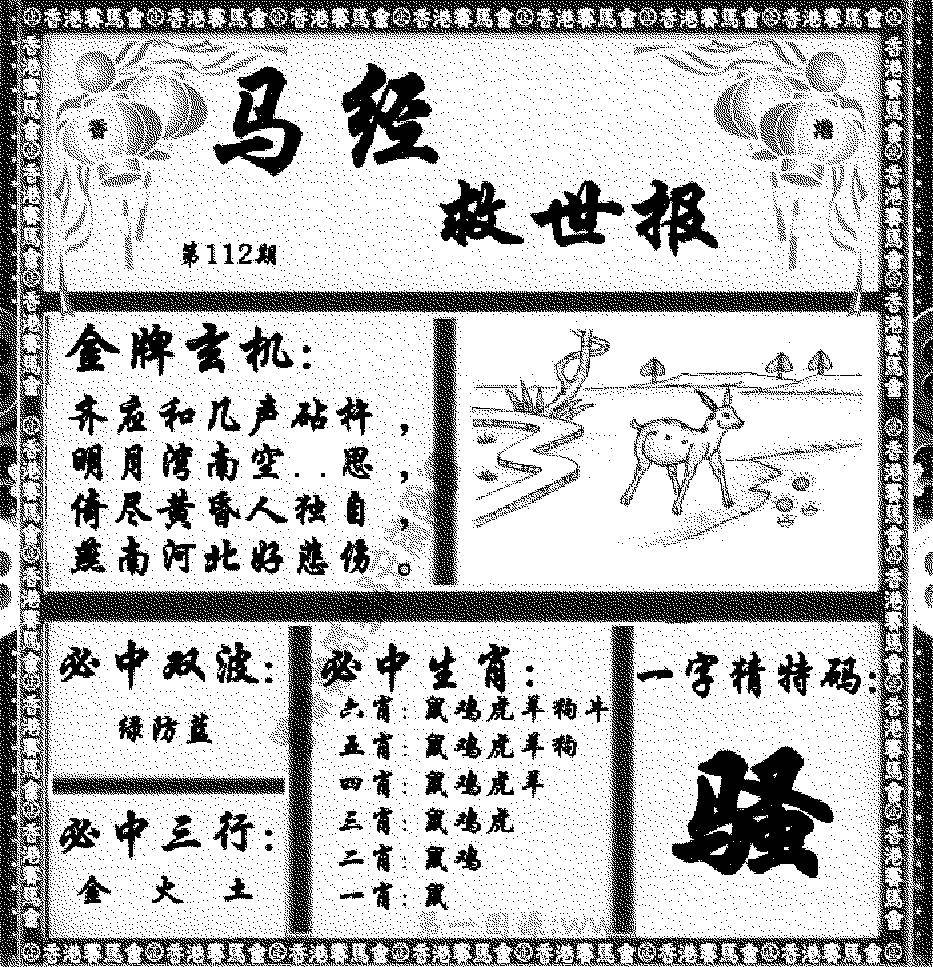 香港賽馬會香港賽馬會香港賽馬會香港賽馬會香港賽馬會香港賽馬會香港賽馬會
香
港
马经
救世报
第112期
金牌玄机:
齐应和几声砧杵,
明月湾南空..思,
倚尽黄昏人独自,
燕南河北好悲伤。
必中双波:
绿防蓝
必中三行:
金 火 土
必中生肖:
六肖:鼠鸡虎羊狗牛
五肖:鼠鸡虎羊狗
四肖:鼠鸡虎羊
三肖:鼠鸡虎
二肖:鼠鸡
一肖:鼠
一字猜特码:
骚
香港賽馬會香港賽馬會香港賽馬會香港賽馬會香港賽馬會香港賽馬會香港賽馬會